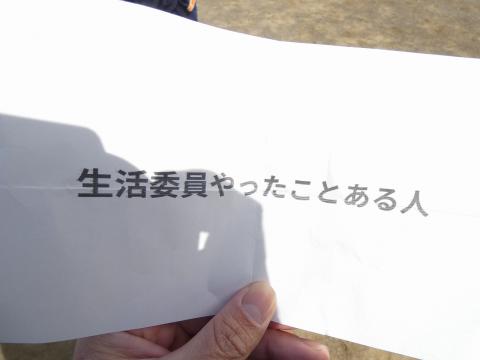 生活委員やったことある人